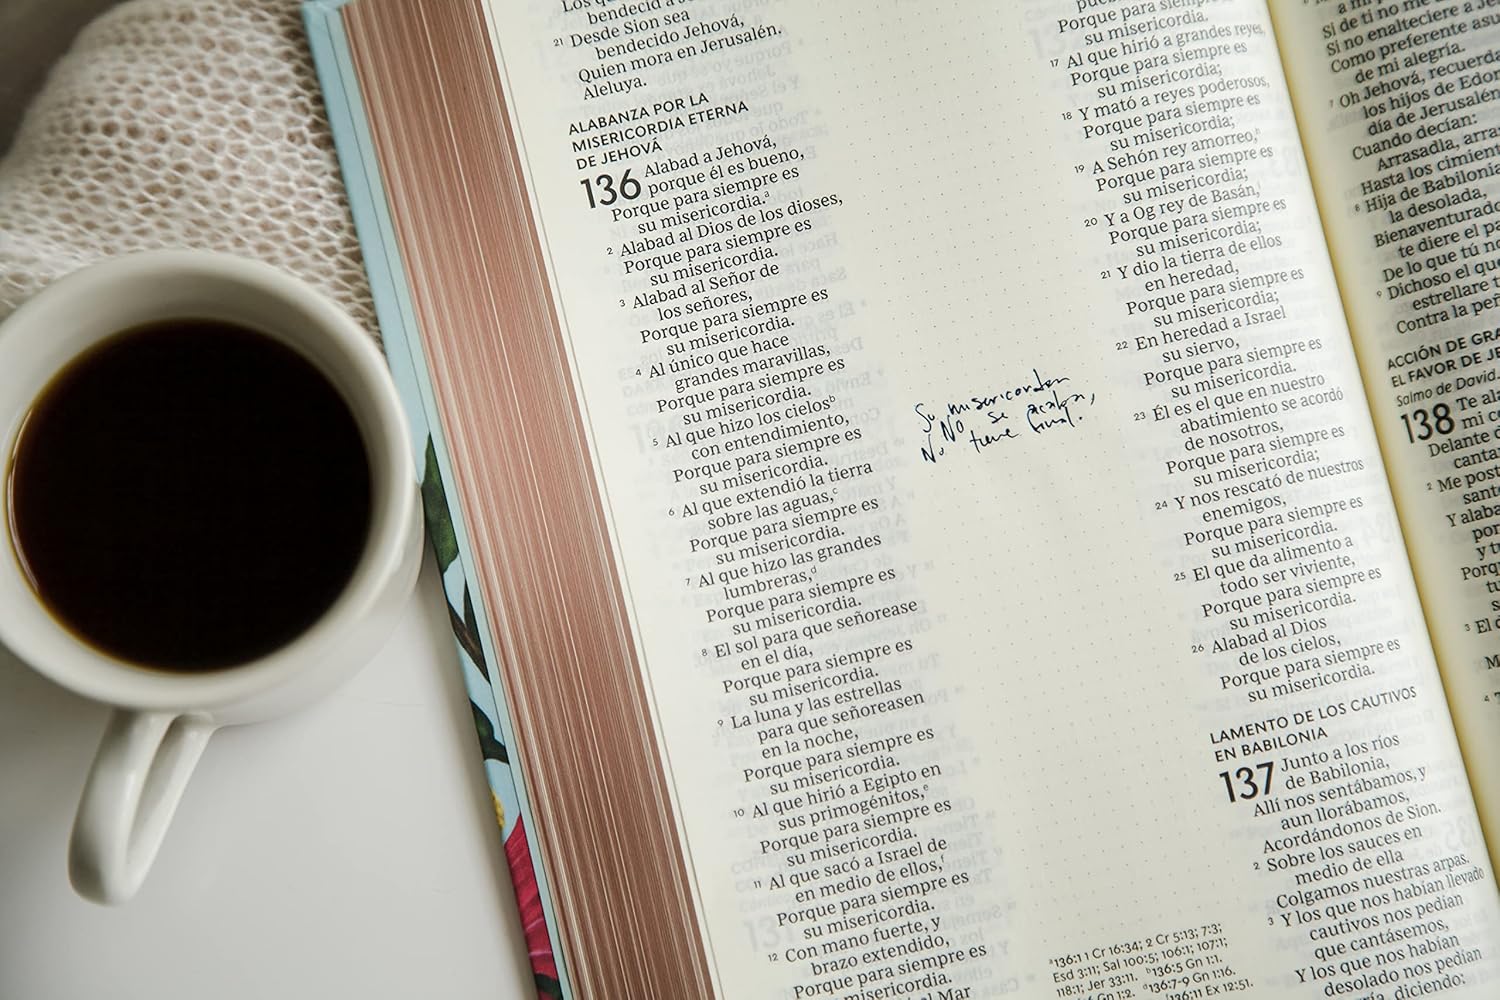 bendecid a
21 Desde Sion sea
bendecido Jehová,
Quien mora en Jerusalén.
Aleluya.
ALABANZA POR LA
MISERICORDIA ETERNA
DE JEHOVÁ
136 Alabad a Jehová,
porque él es bueno,
Porque para siempre es
su misericordia.a
2 Alabad al Dios de los dioses,
Porque para siempre es
su misericordia.
3 Alabad al Señor de
los señores,
Porque para siempre es
su misericordia.
4 Al único que hace
grandes maravillas,
Porque para siempre es
su misericordia.
5 Al que hizo los cielosb
con entendimiento,
Porque para siempre es
su misericordia.
6 Al que extendió la tierra
sobre las aguas,c
Porque para siempre es
su misericordia.
7 Al que hizo las grandes
lumbreras,d
Porque para siempre es
su misericordia.
8 El sol para que señorease
en el día,
Porque para siempre es
su misericordia.
9 La luna y las estrellas
para que señoreasen
en la noche,
Porque para siempre es
su misericordia.
10 Al que hirió a Egipto en
sus primogénitos,e
Porque para siempre es
su misericordia.
11 Al que sacó a Israel de
en medio de ellos,f
Porque para siempre es
su misericordia.
12 Con mano fuerte, y
brazo extendido,
Porque para siempre es
misericordia.
al Mar
Su
NO se acaba,
No tiene final.
Porque para siempre es
su misericordia.
17 Al que hirió a grandes reyes,
Porque para siempre es
su misericordia;
18 Y mató a reyes poderosos,
Porque para siempre es
su misericordia;
19 A Sehón rey amorreo,h
Porque para siempre es
su misericordia;
20 Y a Og rey de Basán,i
Porque para siempre es
su misericordia;
21 Y dio la tierra de ellos
en heredad,
Porque para siempre es
su misericordia;
22 En heredad a Israel
su siervo,
Porque para siempre es
su misericordia.
23 Él es el que en nuestro
abatimiento se acordó
de nosotros,
Porque para siempre es
su misericordia;
24 Y nos rescató de nuestros
enemigos,
Porque para siempre es
su misericordia.
25 El que da alimento a
todo ser viviente,
Porque para siempre es
su misericordia.
26 Alabad al Dios
de los cielos,
Porque para siempre es
su misericordia.
LAMENTO DE LOS CAUTIVOS
EN BABILONIA
137 Junto a los ríos
de Babilonia,
Allí nos sentábamos, y
aun llorábamos,
Acordándonos de Sion.
2 Sobre los sauces en
medio de ella
Colgamos nuestras arpas.
3 Y los que nos habían llevado
cautivos nos pedían
que cantásemos,
Y los que nos habían
desolado nos pedían
diciendo:
a136:1 1 Cr 16:34; 2 Cr 5:13; 7:3;
Esd 3:11; Sal 100:5; 106:1; 107:1;
118:1; Jer 33:11. b136:5 Gn 1:1.
Gn 1:2. d136:7-9 Gn 1:16.
136:11 Ex 12:51.
Si de ti no me
Si no enalteciere a
Como preferente
de mi alegría.
7 Oh Jehová,
los hijos de
día de
Cuando decían:
Arrasadla,
Hasta los
8 Hija de
la desolada,
te diere el
De lo que tú
9 Dichoso el
Contra la
ACCIÓN DE
EL FAVOR DE
Salmo de David.
138 Te
mi
Delante
2 Me
Y
por
y
tu
3 El
4